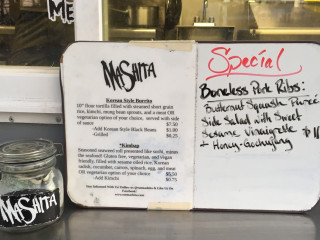 ME
MASHITA
Korean Style Burrito
10" flour tortilla filled with steamed short grain
rice, kimchi, mung bean sprouts, and a meat OR
vegetarian option of your choice, served with side
of sauce $7.50
-Add Korean Style Black Beans $1.00
-Grilled $0.25
*Kimbap
Seasoned seaweed roll presented like sushi, minus
the seafood! Gluten free, vegetarian, and vegan
friendly, filled with sesame oiled rice, Korean
radish, cucumber, carrots, spinach, egg, and meat
OR vegetarian option of your choice $5.50
-Add Kimchi $0.75
Special
Boneless Pork Ribs:
Butternut Squash Purée
Side Salad with Sweet
Sesame Vinaigrette
+ Honey-Gochujang
MASHITA